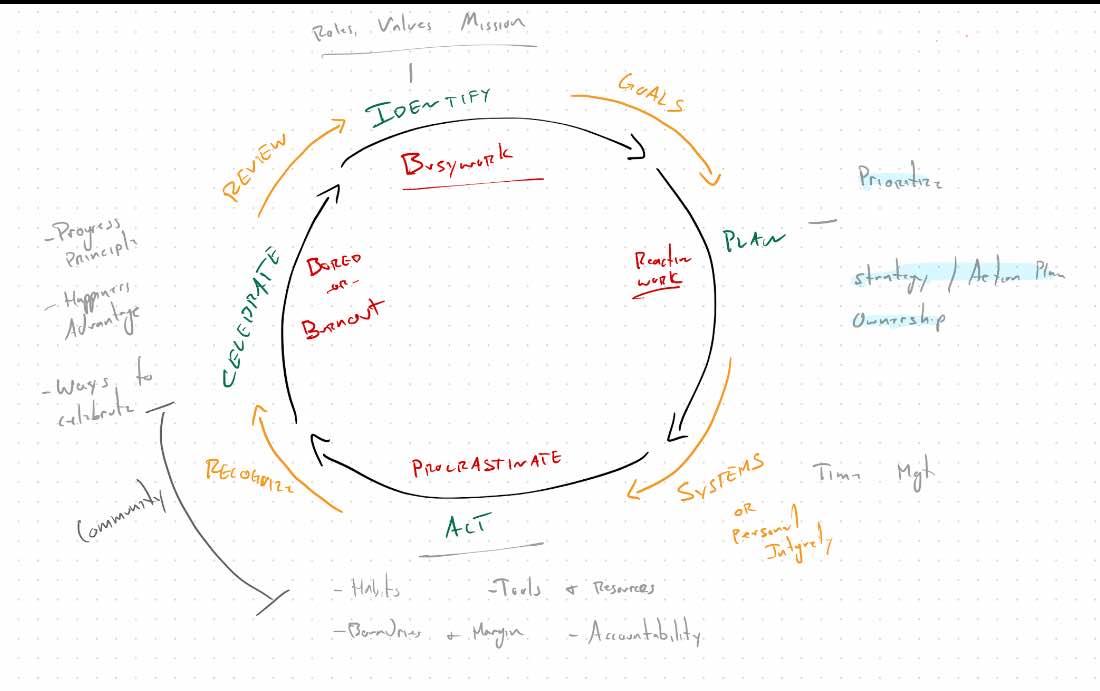 Roles, Values Mission
IDENTIFY
GOALS
REVIEW
Busywork
Prioritize
PLAN
- Progress
Principle
BORED
-or-
Burnout
Reactive
WORK
Strategy / Action Plan
Ownership
- Happiness
Advantage
CELEBRATE
- Ways to
celebrate
PROCRASTINATE
RECOGNIZE
SYSTEMS
OR
Personal
Integrity
Time Mgt
Community
ACT
- Habits
- Tools + Resources
- Boundries + Margin
- Accountability